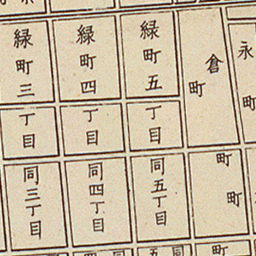 永町
倉町
緑町五丁目
緑町四丁目
緑町三丁目
町町
同五丁目
同四丁目
同三丁目
町
同五
同四